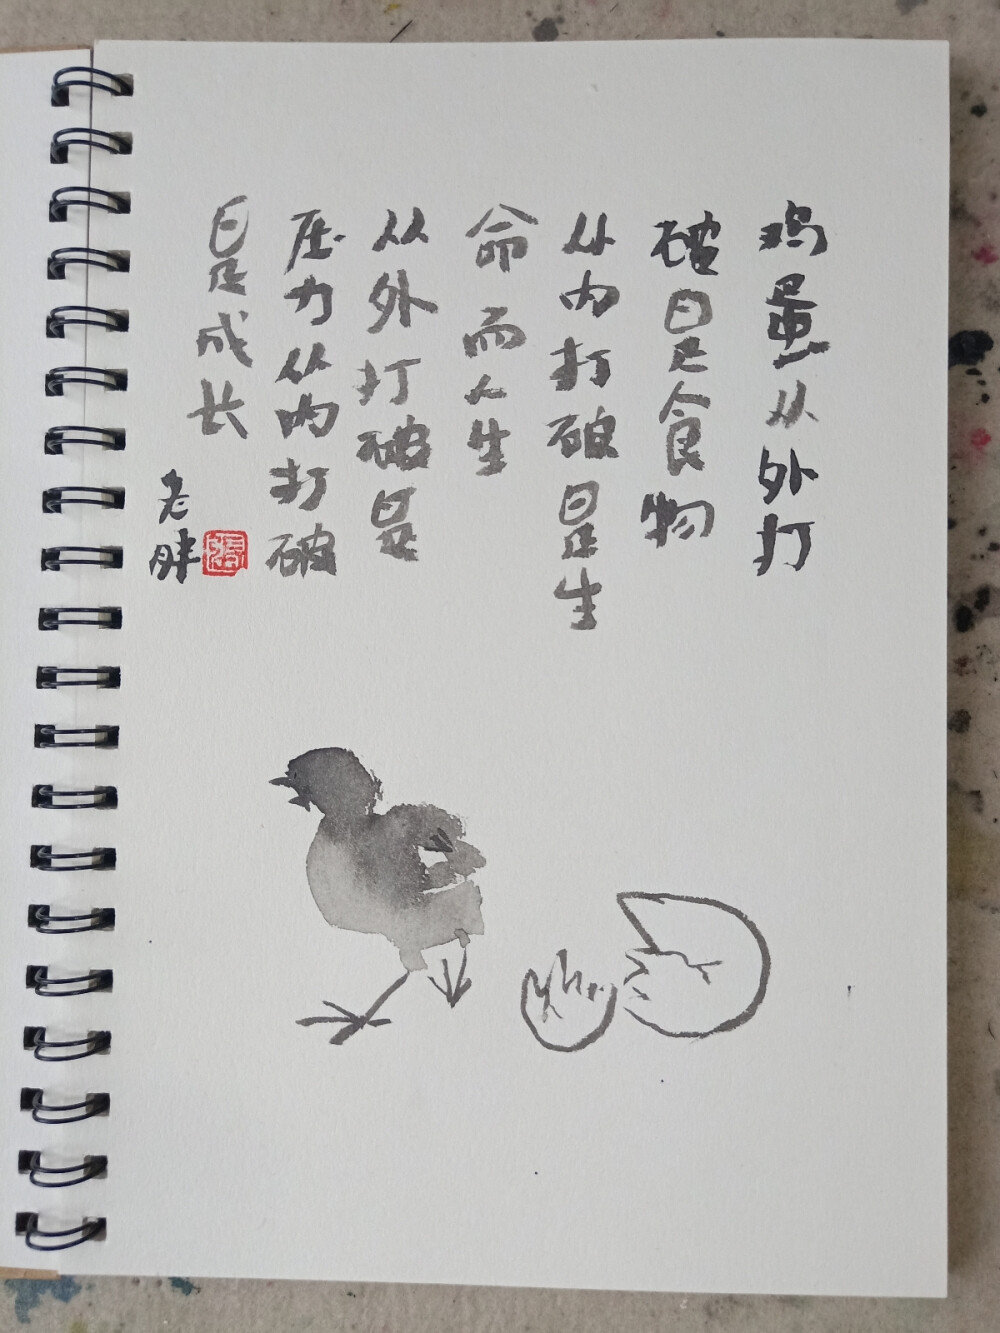 鸡蛋从外打
破是食物
从内打破是生
命而人生
从外打破是
压力从内打破
是成长
老胖